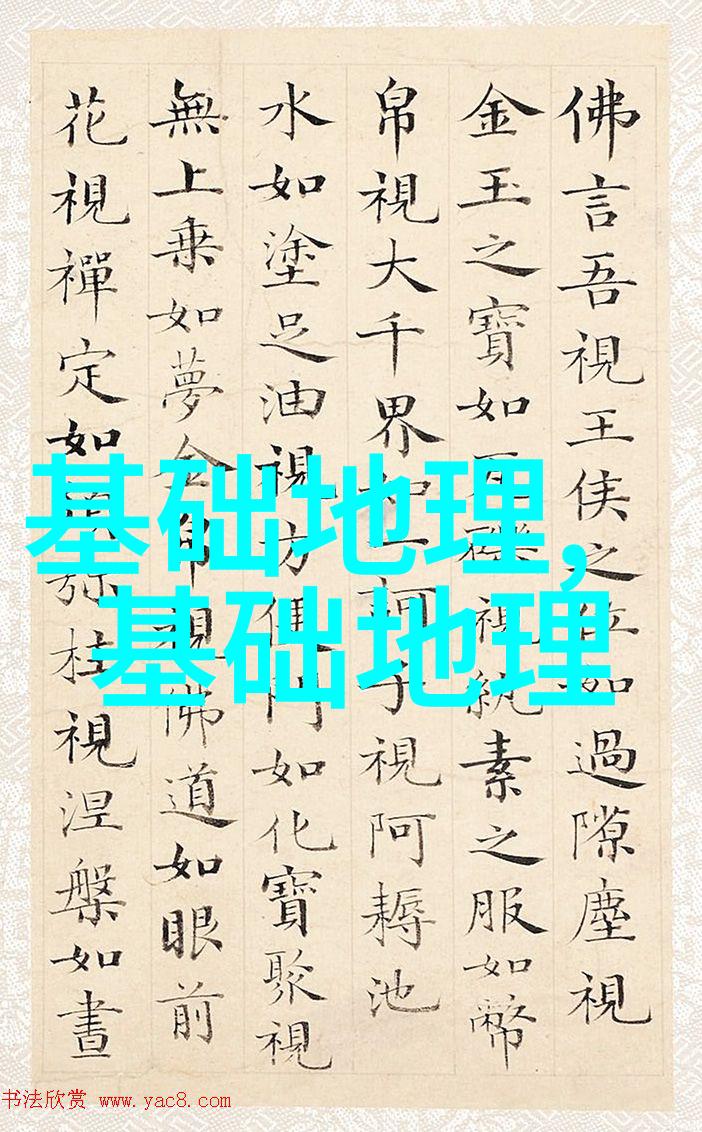 佛言吾視王侯之位如過隙塵視
金玉之寶如瓦礫視紈素之服如幣
帛視大千界如一訶子視阿耨池
水如塗足油視方便門如化寶聚視
無上乗如夢金帛視佛道如眼前
花視禪定如須弥柱視涅槃如晝
基础地理，
基础地理
书法欣赏 www.yac8.com